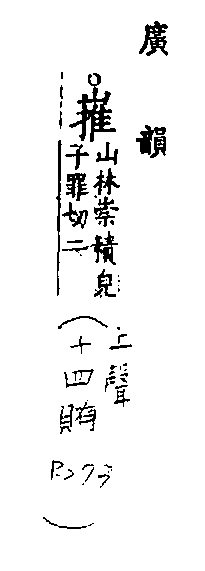 廣韻
○嶊山林崇積皃
子罪切二
（上聲
十四賄
P273）